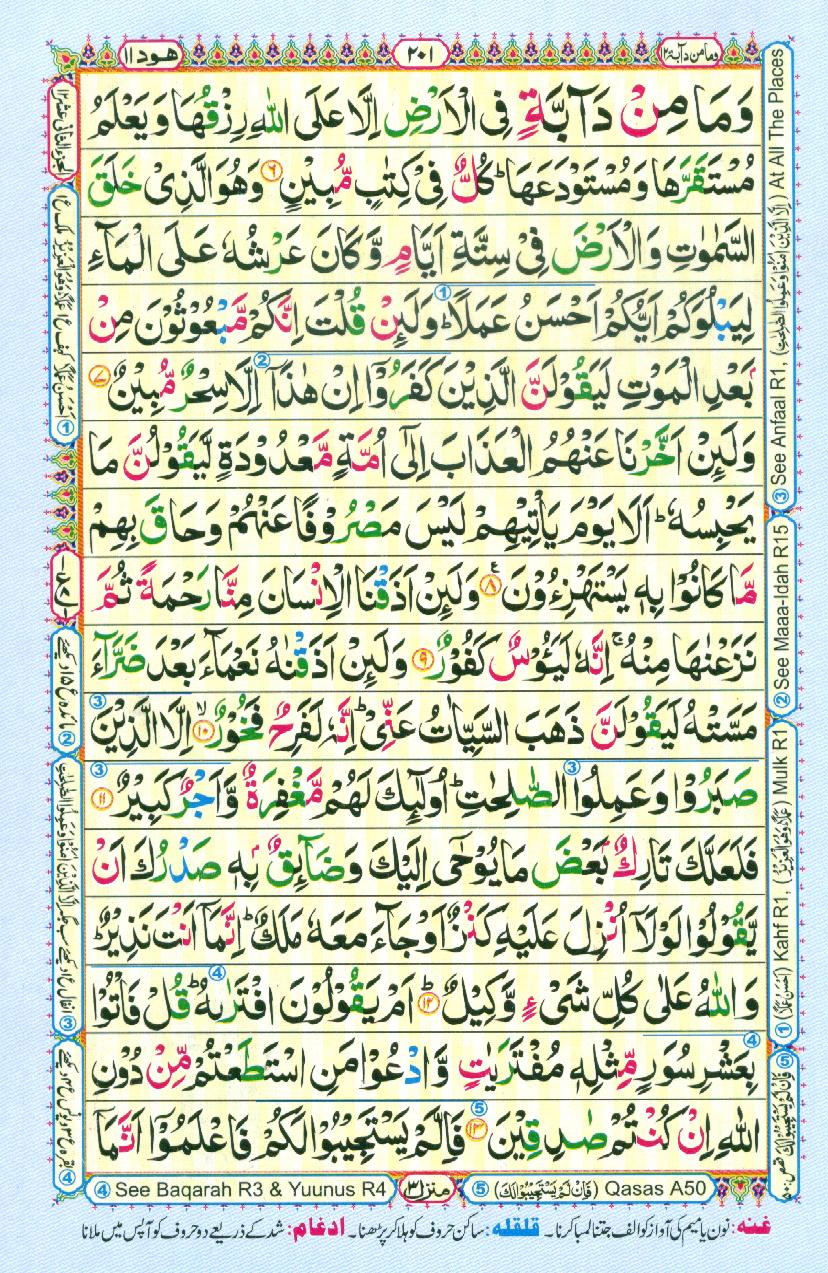 ومامن دآبة ١٢
٢٠١
هود ١١
وَمَا مِنْ دَآبَّةٍ فِى الْاَرْضِ اِلَّا عَلَى اللّٰهِ رِزْقُهَا وَيَعْلَمُ
مُسْتَقَرَّهَا وَمُسْتَوْدَعَهَا ؕ كُلٌّ فِىْ كِتٰبٍ مُّبِيْنٍ ۶ وَهُوَ الَّذِىْ خَلَقَ
السَّمٰوٰتِ وَالْاَرْضَ فِىْ سِتَّةِ اَيَّامٍ وَّكَانَ عَرْشُهٗ عَلَى الْمَآءِ
لِيَبْلُوَكُمْ اَيُّكُمْ اَحْسَنُ عَمَلًا ؕ ① وَلَئِنْ قُلْتَ اِنَّكُمْ مَّبْعُوْثُوْنَ مِنْۢ
بَعْدِ الْمَوْتِ لَيَقُوْلَنَّ الَّذِيْنَ كَفَرُوْۤا اِنْ هٰذَاۤ ② اِلَّا سِحْرٌ مُّبِيْنٌ ۷
وَلَئِنْ اَخَّرْنَا عَنْهُمُ الْعَذَابَ اِلٰٓى اُمَّةٍ مَّعْدُوْدَةٍ لَّيَقُوْلُنَّ مَا
يَحْبِسُهٗ ؕ اَلَا يَوْمَ يَاْتِيْهِمْ لَيْسَ مَصْرُوْفًا عَنْهُمْ وَحَاقَ بِهِمْ
مَّا كَانُوْا بِهٖ يَسْتَهْزِءُوْنَ ۸ وَلَئِنْ اَذَقْنَا الْاِنْسَانَ مِنَّا رَحْمَةً ثُمَّ
نَزَعْنٰهَا مِنْهُ ۚ اِنَّهٗ لَيَئُوْسٌ كَفُوْرٌ ۹ وَلَئِنْ اَذَقْنٰهُ نَعْمَآءَ بَعْدَ ضَرَّآءَ
مَسَّتْهُ لَيَقُوْلَنَّ ذَهَبَ السَّيِّاٰتُ عَنِّىْ ؕ اِنَّهٗ لَفَرِحٌ فَخُوْرٌ ۱۰ اِلَّا الَّذِيْنَ ③
صَبَرُوْا وَعَمِلُوا الصّٰلِحٰتِ ؕ ③ اُولٰٓئِكَ لَهُمْ مَّغْفِرَةٌ وَّاَجْرٌ كَبِيْرٌ ۱۱ ③
فَلَعَلَّكَ تَارِكٌۢ بَعْضَ مَا يُوْحٰٓى اِلَيْكَ وَضَآئِقٌۢ بِهٖ صَدْرُكَ اَنْ
يَّقُوْلُوْا لَوْلَاۤ اُنْزِلَ عَلَيْهِ كَنْزٌ اَوْ جَآءَ مَعَهٗ مَلَكٌ ؕ اِنَّمَاۤ اَنْتَ نَذِيْرٌ ؕ
وَاللّٰهُ عَلٰى كُلِّ شَىْءٍ وَّكِيْلٌ ۱۲ اَمْ يَقُوْلُوْنَ افْتَرٰىهُ ؕ ④ قُلْ فَاْتُوْا
بِعَشْرِ سُوَرٍ مِّثْلِهٖ مُفْتَرَيٰتٍ وَّادْعُوْا مَنِ اسْتَطَعْتُمْ مِّنْ دُوْنِ ④
اللّٰهِ اِنْ كُنْتُمْ صٰدِقِيْنَ ۱۳ ⑤ فَاِلَّمْ يَسْتَجِيْبُوْا لَكُمْ فَاعْلَمُوْۤا اَنَّمَاۤ
③ See Anfaal R1, (اِلَّا الَّذِيْنَ اٰمَنُوْا وَعَمِلُوا الصّٰلِحٰتِ) At All The Places
② See Maaa-Idah R15
① (اَحْسَنُ عَمَلًا) Kahf R1, (عَمَلًا وَهُوَ الْعَزِيْزُ) Mulk R1
⑤ فَاِنْ لَّمْ يَسْتَجِيْبُوْا لَكَ قصص ۵۰
الجزء الثانى عشر ١٢
② مائده ع ۱۵ دیکھئے
④ See Baqarah R3 & Yuunus R4
منزل ٣
⑤ (فَاِنْ لَّمْ يَسْتَجِيْبُوْا لَكَ) Qasas A50
غنه: نون یا میم کی آواز کو الف جتنا لمبا کرنا۔ قلقله: ساکن حروف کو ہلا کر پڑھنا۔ ادغام: شد کے ذریعے دو حروف کو آپس میں ملانا